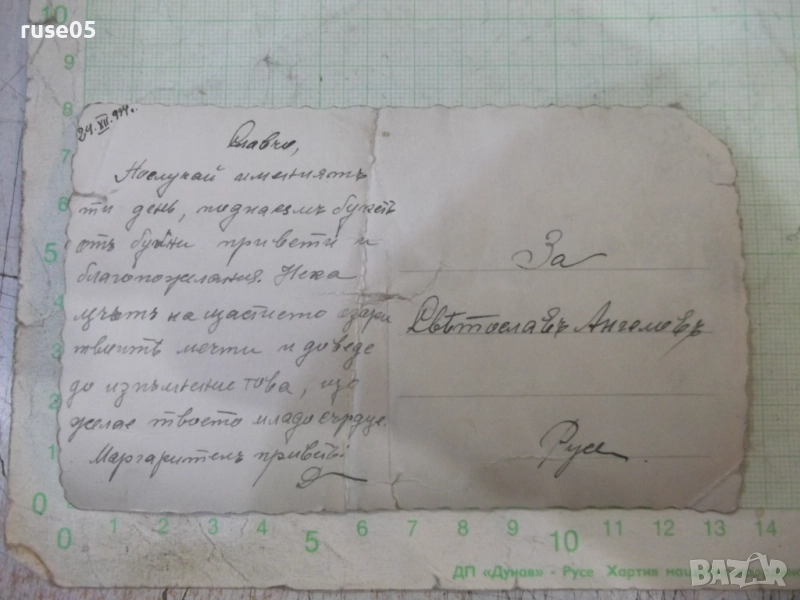 ruse05
24.XII.944.
Славчо,
По случай именниятъ
ти день, поднасямъ букетъ
отъ буйни привети и
благопожелания. Нека
лъчътъ на щастието озари
твоитѣ мечти и доведе
до изпълнение това, що
желае твоето младо сърдце.
Маргарителъ приветъ:
За
Свѣтославъ Ангеловъ
Русе.
10
9
8
7
6
5
4
3
2
1
0
0 1 2 3 4 5 6 7 8 9 10 11 12 13 14
ДП «Дунав» - Русе Хартия
BAZAR